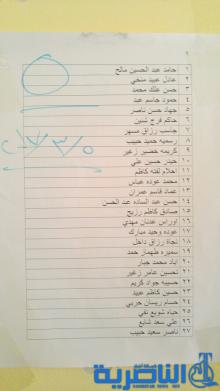 ١ حامد عبد الحسين صالح
٢ عادل عبيد منخي
٣ حسن علك محمد
٤ حمود جاسم عبد
٥ جهاد حسن ناصر
٦ حاكم فرج شنين
٧ جاسب رزاق مسهر
٨ رسميه حميد حبيب
٩ كريمه خضير زغير
١٠ حيدر حسين علي
١١ احلام لفته كاظم
١٢ محمد عوده عباس
١٣ عماد قاسم عمران
١٤ حسن عبد الساده عبد الحسن
١٥ صادق كاظم رزيج
١٦ اوراس عدنان مهدي
١٧ عوده وحيد مبارك
١٨ نجاة رزاق داخل
١٩ سميره طهماز حمد
٢٠ اياد محمد جبار
٢١ تحسين عامر زغير
٢٢ حسيبه جواد كريم
٢٣ حسن كاظم عبيد
٢٤ حسام ريسان حربي
٢٥ حياه شويع نفي
٢٦ علي سعد شايع
٢٧ ناصر سعيد حبيب
الناصرية